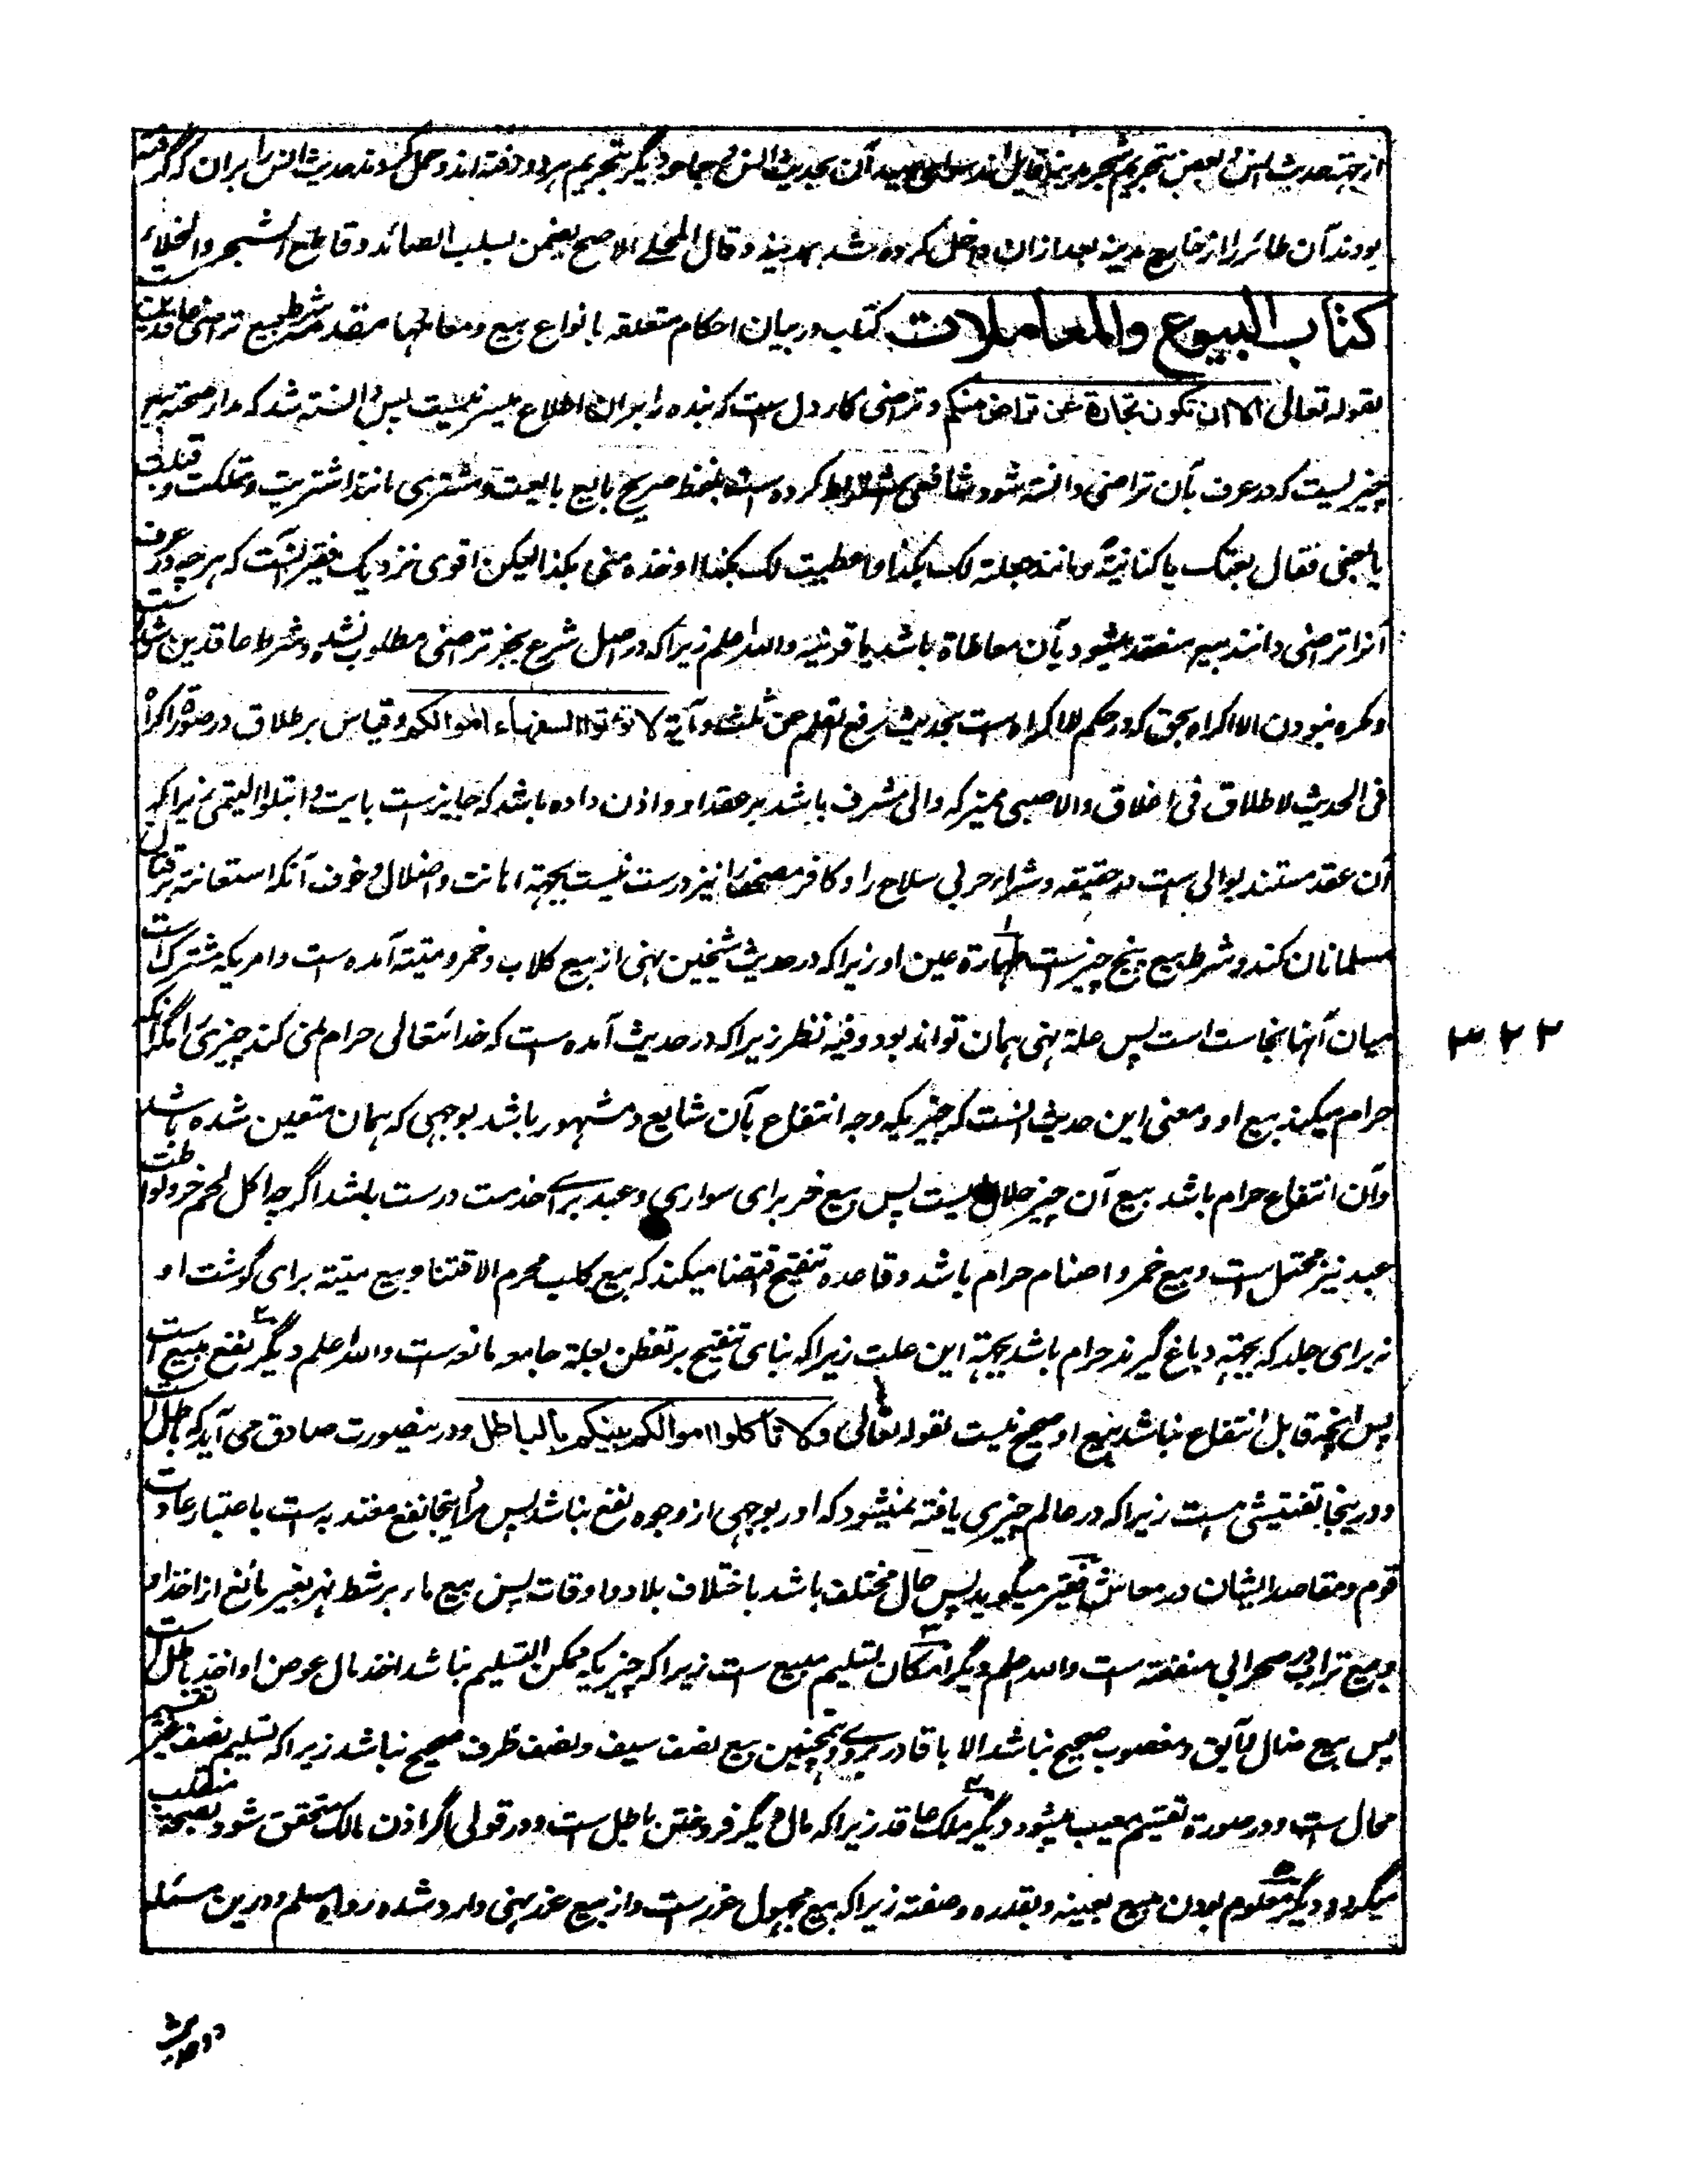 از جهته حدیث انس و بعض بتحریم شجر مدینه قایل اند سوای صید آن بحدیث انس و جماعه دیگر بتحریم هر دو رفته اند و حمل کردند حدیث انس را بران که گرفته
بودند آن طائر را از خارج مدینه بعد ازان داخل کرده شد بمدینه و قال المحلے الاصح یضمن بسلب الصائد و قاطع الشجر والخلاء
کتاب البیوع والمعاملات کتاب در بیان احکام متعلقه بانواع بیع و معاملها مقدمه شرط بیع تراضی عاقدین ست
لقوله تعالی الا ان تکون تجارة عن تراض منکم و تراضی کار دل ست که بنده را بران اطلاع میسر نیست پس دانسته شد که مدار صحته بیع
چیزیست که در عرف بآن تراضی دانسته شود شافعی اشتراط کرده ست بلفظ صریح بایع بایعت و مشتری مانند اشتریت و تملکت و قبلت
یا اجنبی فقال بعتک یا کنایة مانند جعلته لک بکذا و اعطیت لک بکذا او خذه منی بکذا لیکن اقوی نزدیک فقیر آنست که هر چه در عرف
آنرا تراضی دانند بیع منعقد میشود بآن معاطاة باشد یا قرینه والله اعلم زیرا که در اصل شرع بجز تراضی مطلوب نشد و شرط عاقدین
و مکره نبودن الا اکراه بحق که در حکم لا اکراه ست بحدیث رفع القلم عن ثلث و آیة لا تؤتوا السفهاء اموالکم و قیاس بر طلاق در صورة اکراه
فی الحدیث لا طلاق فی اغلاق والا صبی ممیز که والی مشرف باشد بر عقد او و اذن داده باشد که جایز ست بآیت وابتلوا الیتمی زیرا که
آن عقد مستند بوالی ست در حقیقه و شراء حربی سلاح را و کافر مصحف را نیز درست نیست بجهة اهانت و اضلال و خوف آنکه استعانته بر قتال
مسلمانان کنند و شرط بیع پنج چیز ست ۱ طهارة عین او زیرا که در حدیث شیخین نهی از بیع کلاب و خمر و میتة آمده ست و امریکه مشترک ست
میان آنها نجاست است پس علة نهی همان تواند بود و فیه نظر زیرا که در حدیث آمده ست که خدا تعالی حرام نمی کند چیزی را مگر آنکه
حرام میکند بیع او و معنی این حدیث آنست که چیزیکه وجه انتفاع بآن شایع و مشهور باشد بوجهی که همان متعین شده باشد
و آن انتفاع حرام باشد بیع آن چیز حلال نیست پس بیع خر برای سواری و عبد برای خدمت درست باشد اگر چه اکل لحم خر و لواطت
عبد نیز محتمل ست و بیع خمر و اصنام حرام باشد و قاعده تنقیح اقتضا میکند که بیع کلب محرم الاقتنا و بیع میتة برای گوشت او
نه برای جلد که بجهته دباغ گیرند حرام باشد بجهة این علت زیرا که بنای تنقیح بر تفطن بعلة جامعه مانوست والله اعلم ۲ دیگر نفع مبیع ست
پس آنچه قابل انتفاع نباشد بیع او صحیح نیست لقوله تعالی ولا تأکلوا اموالکم بینکم بالباطل و درینصورت صادق می آید که باطل ست
و درینجا تفتیشی هست زیرا که در عالم چیزی یافته نمیشود که او را بوجهی از وجوه نفع نباشد پس مراد اینجا نفع معتد به ست باعتبار عادات
قوم و مقاصد ایشان در معاش فقیر میگوید پس حال مختلف باشد باختلاف بلاد و اوقات پس بیع ماء بر شط نهر بغیر مانع از اخذ او
و بیع تراب در صحرا بی منفعته ست والله اعلم ۳ دیگر امکان تسلیم مبیع ست زیرا که چیزیکه ممکن التسلیم نباشد اخذ مال عوض او اخذ باطل ست
پس بیع ضال و آبق و مغصوب صحیح نباشد الا با قادر برو و همچنین بیع نصف سیف و نصف ظرف صحیح نباشد زیرا که تسلیم نصف بغیر تقسیم
محال ست و در صورة تقسیم معیب میشود ۴ دیگر ملک عاقد زیرا که مال دیگر فروختن باطل ست و در قولی اگر اذن مالک متحقق شود منقلب بصحة
میگردد ۵ دیگر معلوم بودن مبیع بعینه و بقدره و صفته زیرا که بیع مجهول غرر ست و از بیع غرر نهی وارد شده رواه مسلم و درین مسئله
۳۲۲